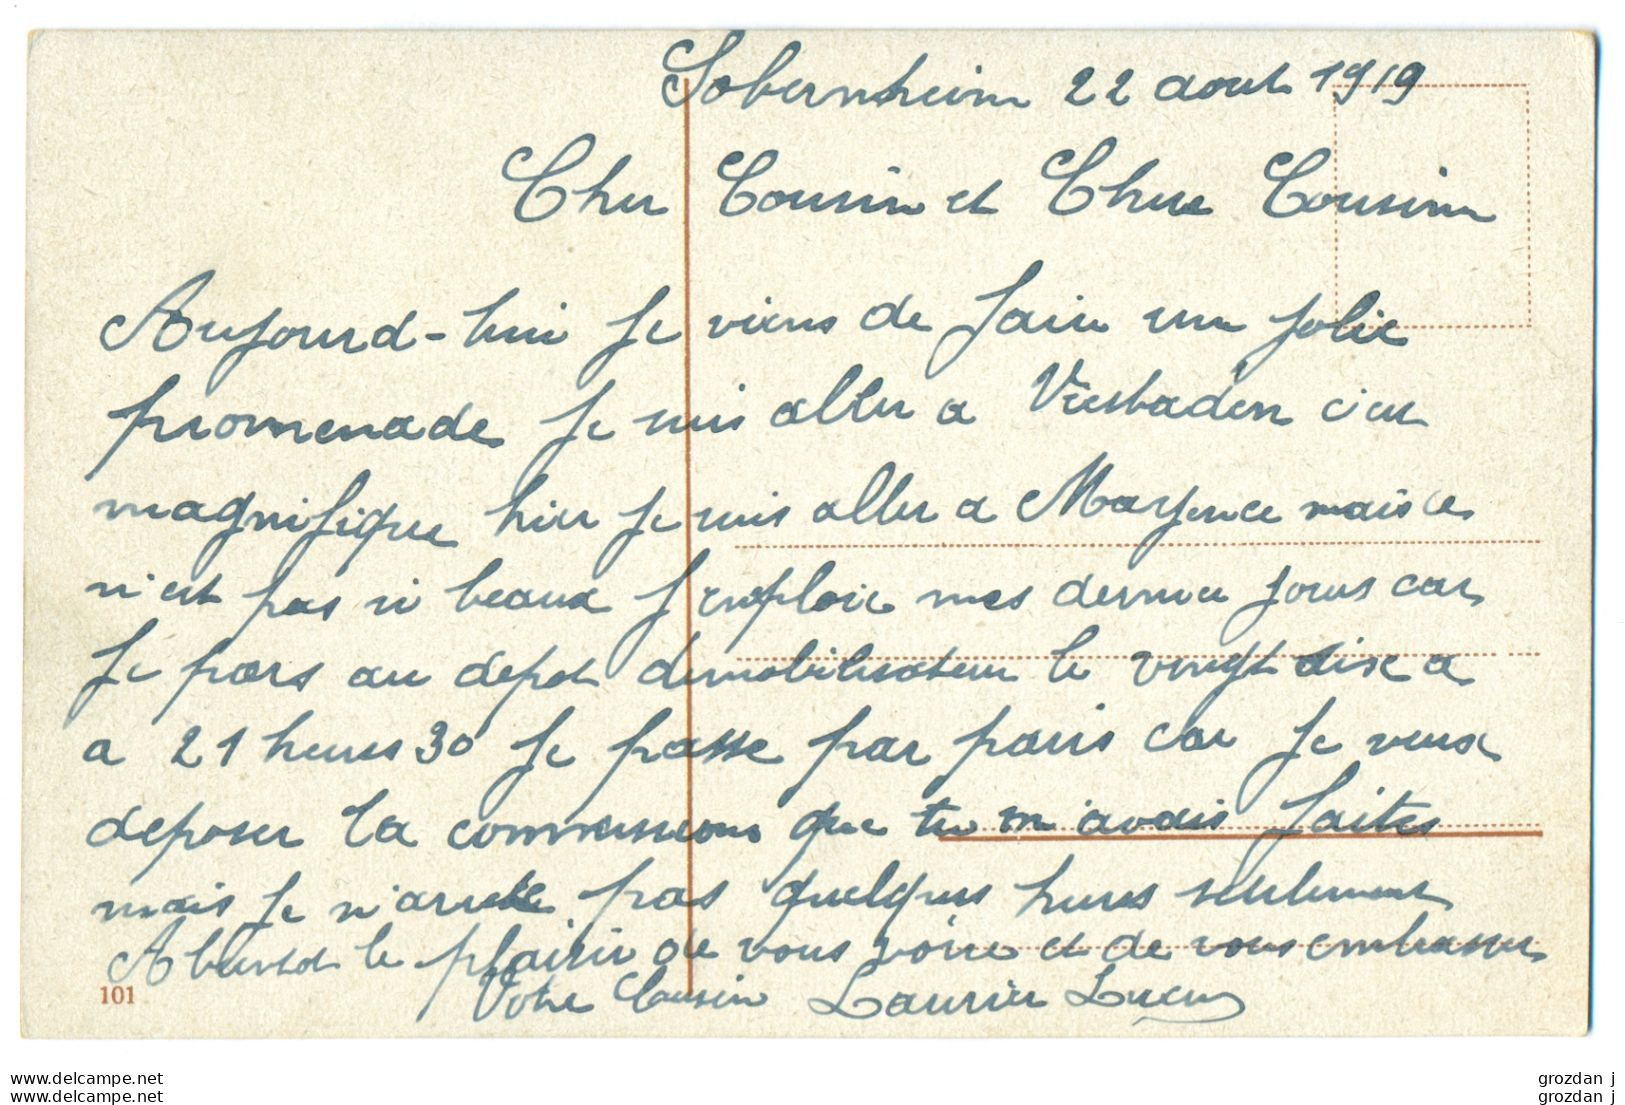 Sobernheim 22 aout 1919
Cher Cousin et Chere Cousine
Aujourd-hui je viens de faire une jolie
promenade je suis aller a Viesbaden c'est
magnifique hier je suis aller a Mayence mais ce
n'est pas si beaux j'emploie mes dernier jours car
je pars au depot demobilisateur le vingt six a
a 21 heures 30 je passe par paris car je veux
deposer la commission que tu m'avais faites
mais je n'arrete pas quelques heures seulement
A bientot le plaisir de vous voire et de vous embrasser
Votre Cousin Laurier Lucien
101
www.delcampe.net
www.delcampe.net
grozdan j
grozdan j